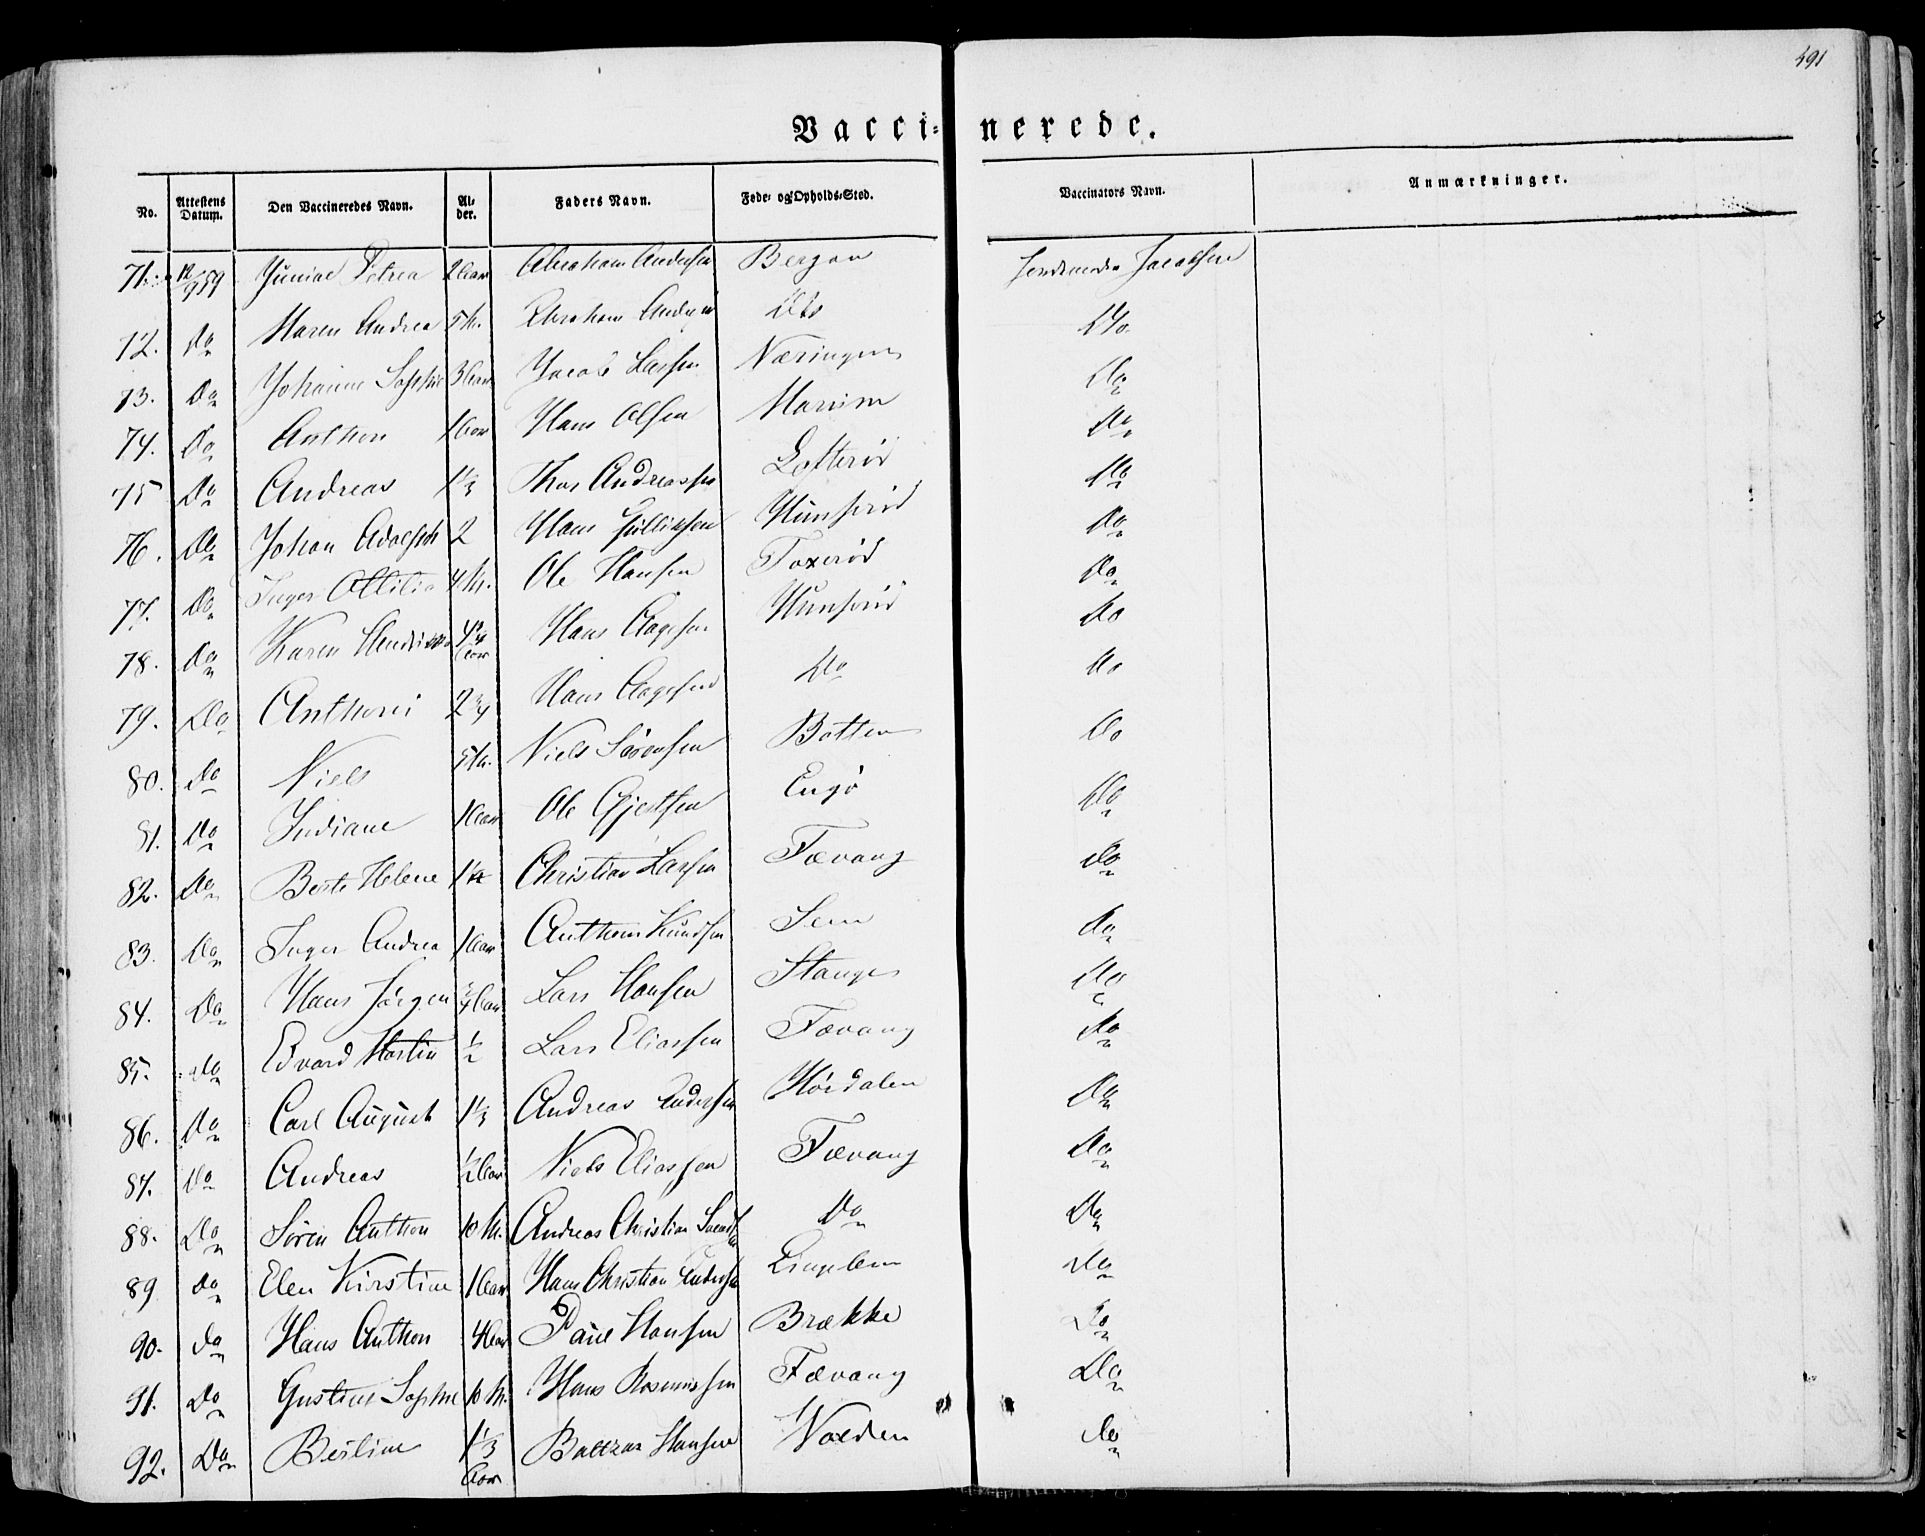 491
Vacci- nerede.
No. Attestens Datum. Den Vaccineredes Navn. Al-der. Faders Navn. Føde- og Opholds-Sted. Vaccinators Navn. Anmærkninger.
71. 12/9 59 Petrea 2 Aar Abraham Andersen Bergan Jacobsen
72. Do Maren Andrea 5 M. Abraham Do
73. Do Johanne Sophie 3 Aar Jacob Larsen Næringen Do
74. Do Anthon 1 Aar Hans Olsen Do
75 Do Andreas 1 1/3 Thor Andreassen Lofterød Do
76. Do Johan Adolph 2 Hans Gulliksen Hunsrød Do
77. Do Inger Ottilia 4 M. Ole Hansen Foxerød Do
78. Do Karen 4 3/4 Aar Hans Aagesen Hunsrød Do
79. Do Anthoni 2 3/4 Hans Aagesen Do Do
80. Do Niels 5 M. Niels Sørensen Botten Do
81. Do Indiane 1 Aar Ole Gjertsen Engø Do
82. Do Berte Helene 1 1/2 Christian Larsen Fævang Do
83. Do Inger Andrea 1 Aar Anthon Knudsen Sem Do
84. Do Hans Jørgen 3/4 Aar Lars Hansen Stange Do
85. Do Edvard Martin 1/2 Lars Eliassen Fævang Do
86. Do Carl August 1 1/3 Andreas Andersen Hørdalen Do
87. Do Andreas 1/2 Aar Niels Eliassen Fævang Do
88. Do Søren Anthon 10 M. Andreas Christian Svendsen Do Do
89 Do Elen Kirstine 1 Aar Hans Christian Andersen Lingelem Do
90. Do Hans Anthon 4 Aar Paul Hansen Brække Do
91. Do Gustine Sophie 10 M. Hans Rasmussen Fævang Do
92. Do Bertine 1 1/3 Aar Baltzar Hansen Volden Do